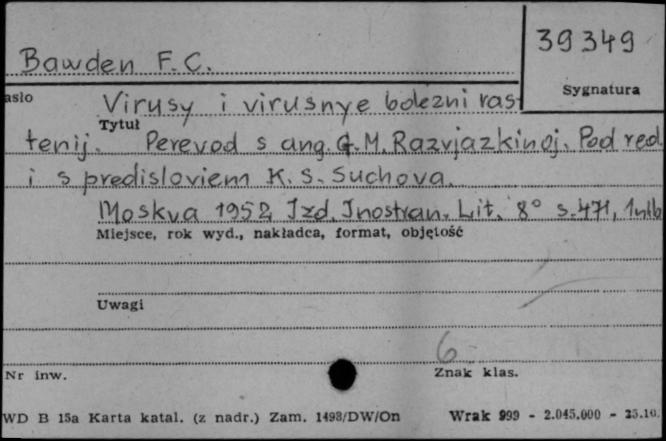 39349
Bawden F.C.
Sygnatura
asło
Virusy i virusnye bolezni ras-
Tytuł
tenij. Perevod s ang. G.M. Razvjazkinoj. Pod red.
i s predisloviem K.S. Suchova.
Moskva 1952 Izd. Inostran. Lit. 8° s. 471, 1nlb
Miejsce, rok wyd., nakładca, format, objętość
Uwagi
6
Nr inw.
Znak klas.
WD B 15a Karta katal. (z nadr.) Zam. 1493/DW/On Wrak 999 - 2.045.000 - 23.10.